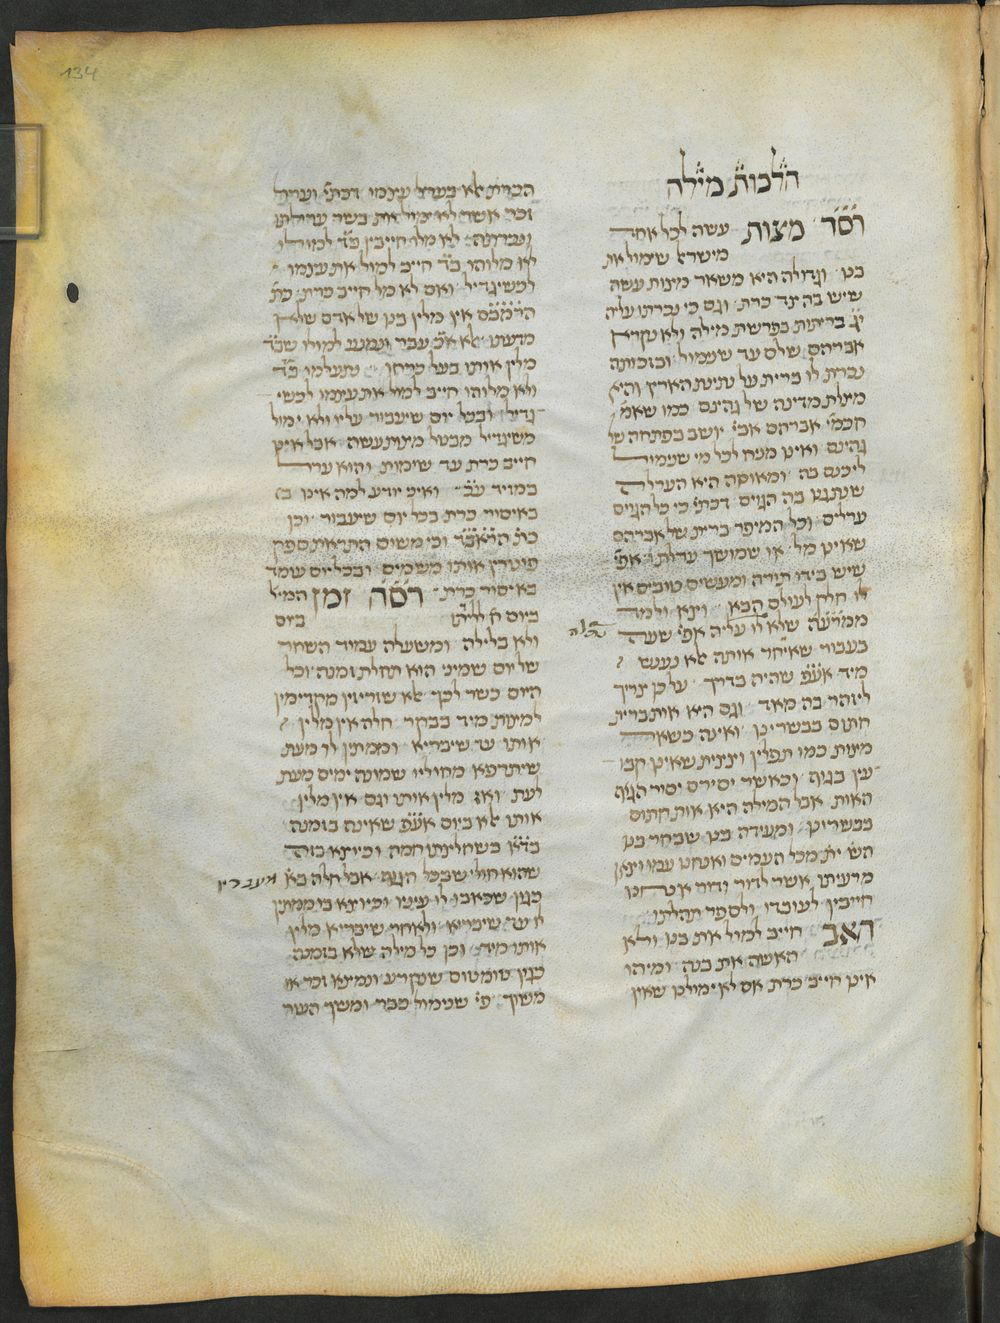 134
הלכות מילה
רסד מצות עשה לכל אחד
מישראל שימול את
בנו וגדולה היא משאר מצות עשה
שיש בה צד כרת וגם כי נכרתו עליה
יג בריתות בפרשת מילה ולא נקרא
אברהם שלם עד שנימול ובזכותה
נכרת לו ברית על נתינת הארץ והיא
מצלת מדינה של גהינם כמו שאמ
חכמי אברהם אבי יושב בפתחה של
גהינם ואינו מניח לכל מי שנימול
ליכנס בה ומאוסה היא הערלה
שנתגנו בה הגוים דכתי כי כל הגוים
ערלים וכל המיפר ברית של אברהם
שאינו מל או שמושך ערלתו אפי
שיש בידו תורה ומעשים טובים אין
לו חלק לעולם הבא וצא ולמד
ממרעה שלא לו עליה אפי שעה
בעבור שאיחר אותה לא נענש
מיד אעפ שהיה בדרך על כן צריך
ליזהר בה מאד וגם היא אות ברית
חתום בבשרינו ואינה כשאר
מצות כמו תפלין וציצית שאינן קבו
עין בגוף וכאשר יסירם יסיר הגוף
האות אבל המילה היא אות חתום
בבשרינו ומעידה בנו שבחר בנו
הש ית מכל העמים ואנחנו עמו וצאן
מרעיתו אשר לדור ודור אנחנו
חייבין לעובדו ולספר תהלתו
האב חייב למול את בנו ולא
האשה את בנה ומיהו
אינו חייב כרת אם לא ימולנו שאין
הכרת לא בערל עצמו דכתי וערל
זכר אשר לא ימול את בשר ערלתו
ונכרתה לא מלו חייבין בד למולו
לא מלוהו בד חייב למול את עצמו
לכשיגדיל ואם לא מל חייב כרת כת
הרמבם אין מלין בנו של אדם שלא
מדעתו לא אכ עבר ונמנע למולו שבד
מלין אותו בעל כרחו נתעלמו בד
ולא מלוהו חייב למול את עצמו לכשי
גדיל ובכל יום שיעבור עליו ולא ימול
משיגדיל מבטל מצות עשה אבל אינו
חייב כרת עד שימות והוא ערל
במזיד עכ ואיני יודע למה אינו ב
באיסור כרת בכל יום שיעבור וכן
כת הראבד וכי משום התראת ספק
פוטרין אותו משמים ובכל יום עומד
באיסור כרת רסה זמן המיל
ביום ח ללידתו ביום
ולא בלילה ומשעלה עמוד השחר
של יום שמיני הוא תחלת זמנה וכל
היום כשר לכך לא שזריזין מקדימין
למצות מיד בבקר חלה אין מלין
אותו עד שיבריא וממתין לו מעת
שיתרפא מחוליו שמונה ימים מעת
לעת ואז מלין אותו וגם אין מלין
אותו לא ביום אעפ שאינה בזמנה
בדא בשחלצתו חמה וכיוצא בזה
שהוא חולי שבכל הגוף אבל חלה בא
כגון שכאבו לו עיניו וכיוצא בו ממתין
לו עד שיבריא ולאחר שיבריא מלין
אותו מיד וכן כל מילה שלא בזמנה
כגון טומטום שנקרע ונמצא זכר או
משוך פי שנימול כבר ומשך העור